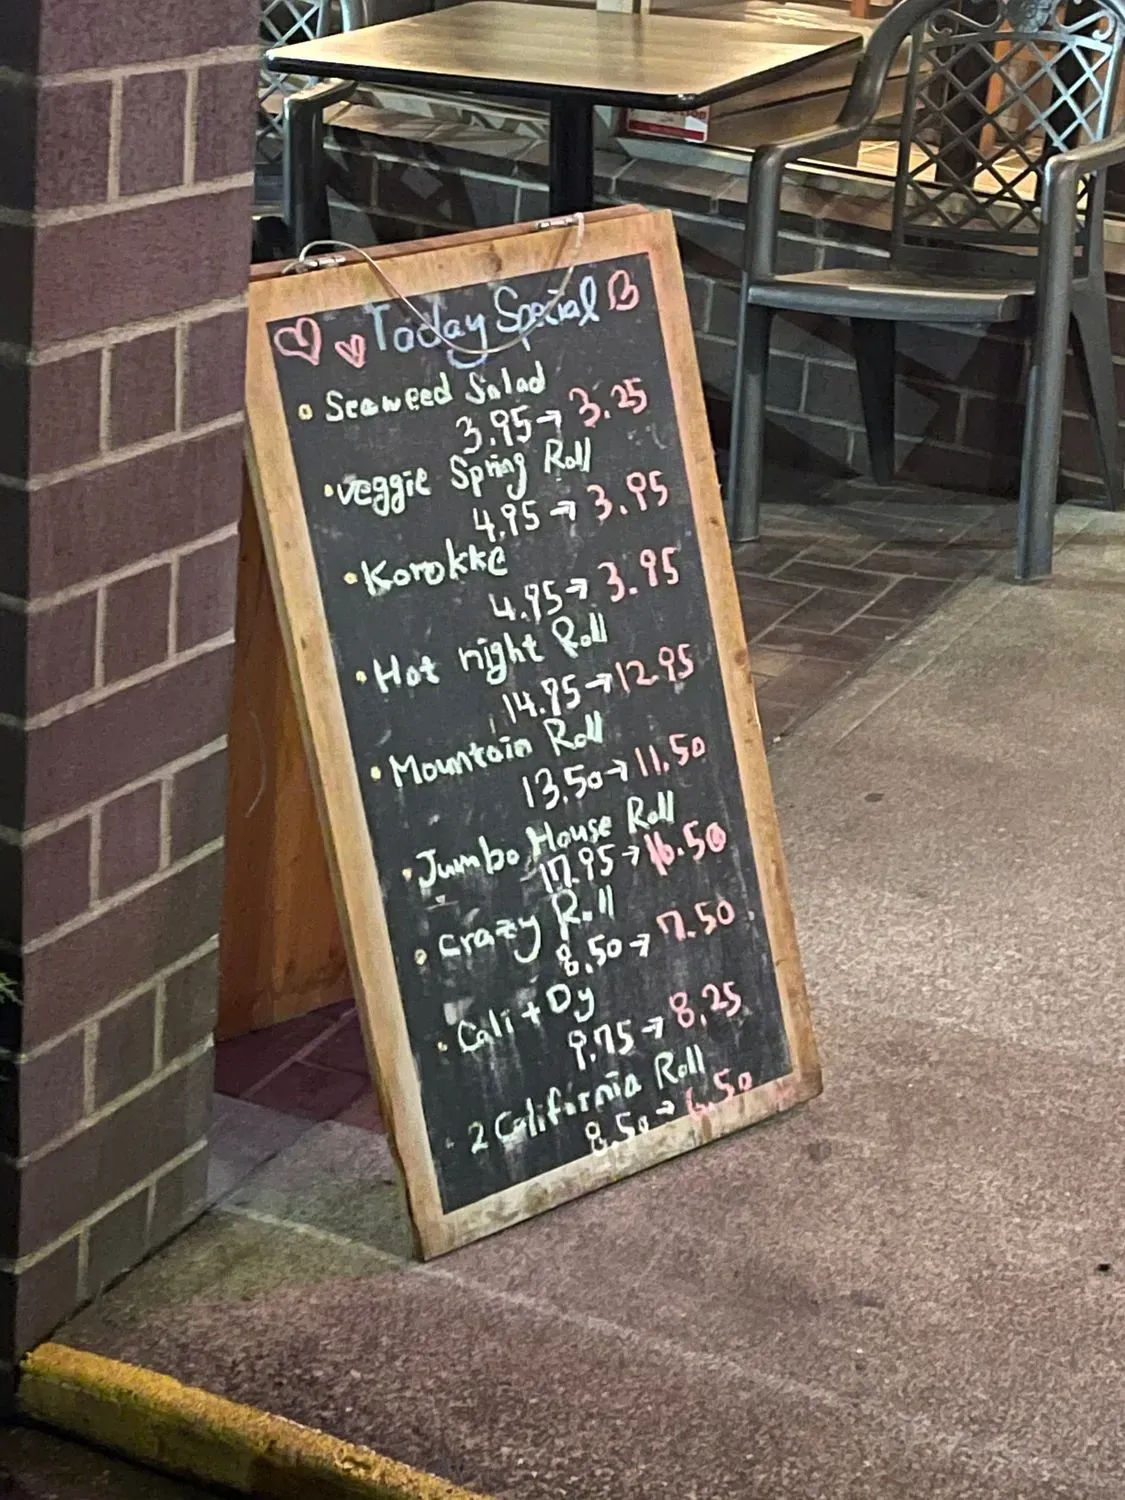 Today Special
Seaweed Salad
3.95→ 3.25
veggie Spring Roll
4.95→ 3.95
Korokke
4.95→ 3.95
Hot night Roll
14.95→12.95
Mountain Roll
13.50→11.50
Jumbo House Roll
17.95→16.50
Crazy Roll
8.50→ 7.50
Cali + Dy
9.75→ 8.25
2 California Roll
8.50→ 6.50